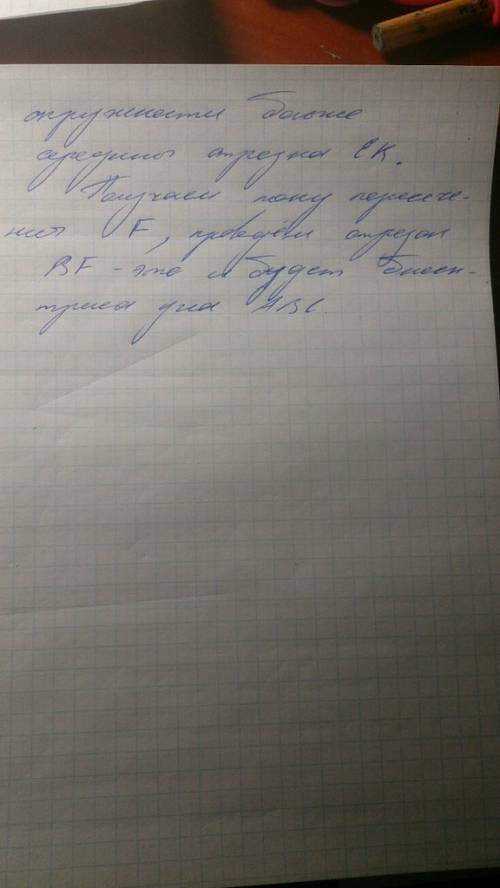 окружности больше
середины отрезка EK.
Получаем точку пересече-
ния F, проведём отрезок
BF - это и будет биссек-
триса угла ABC.